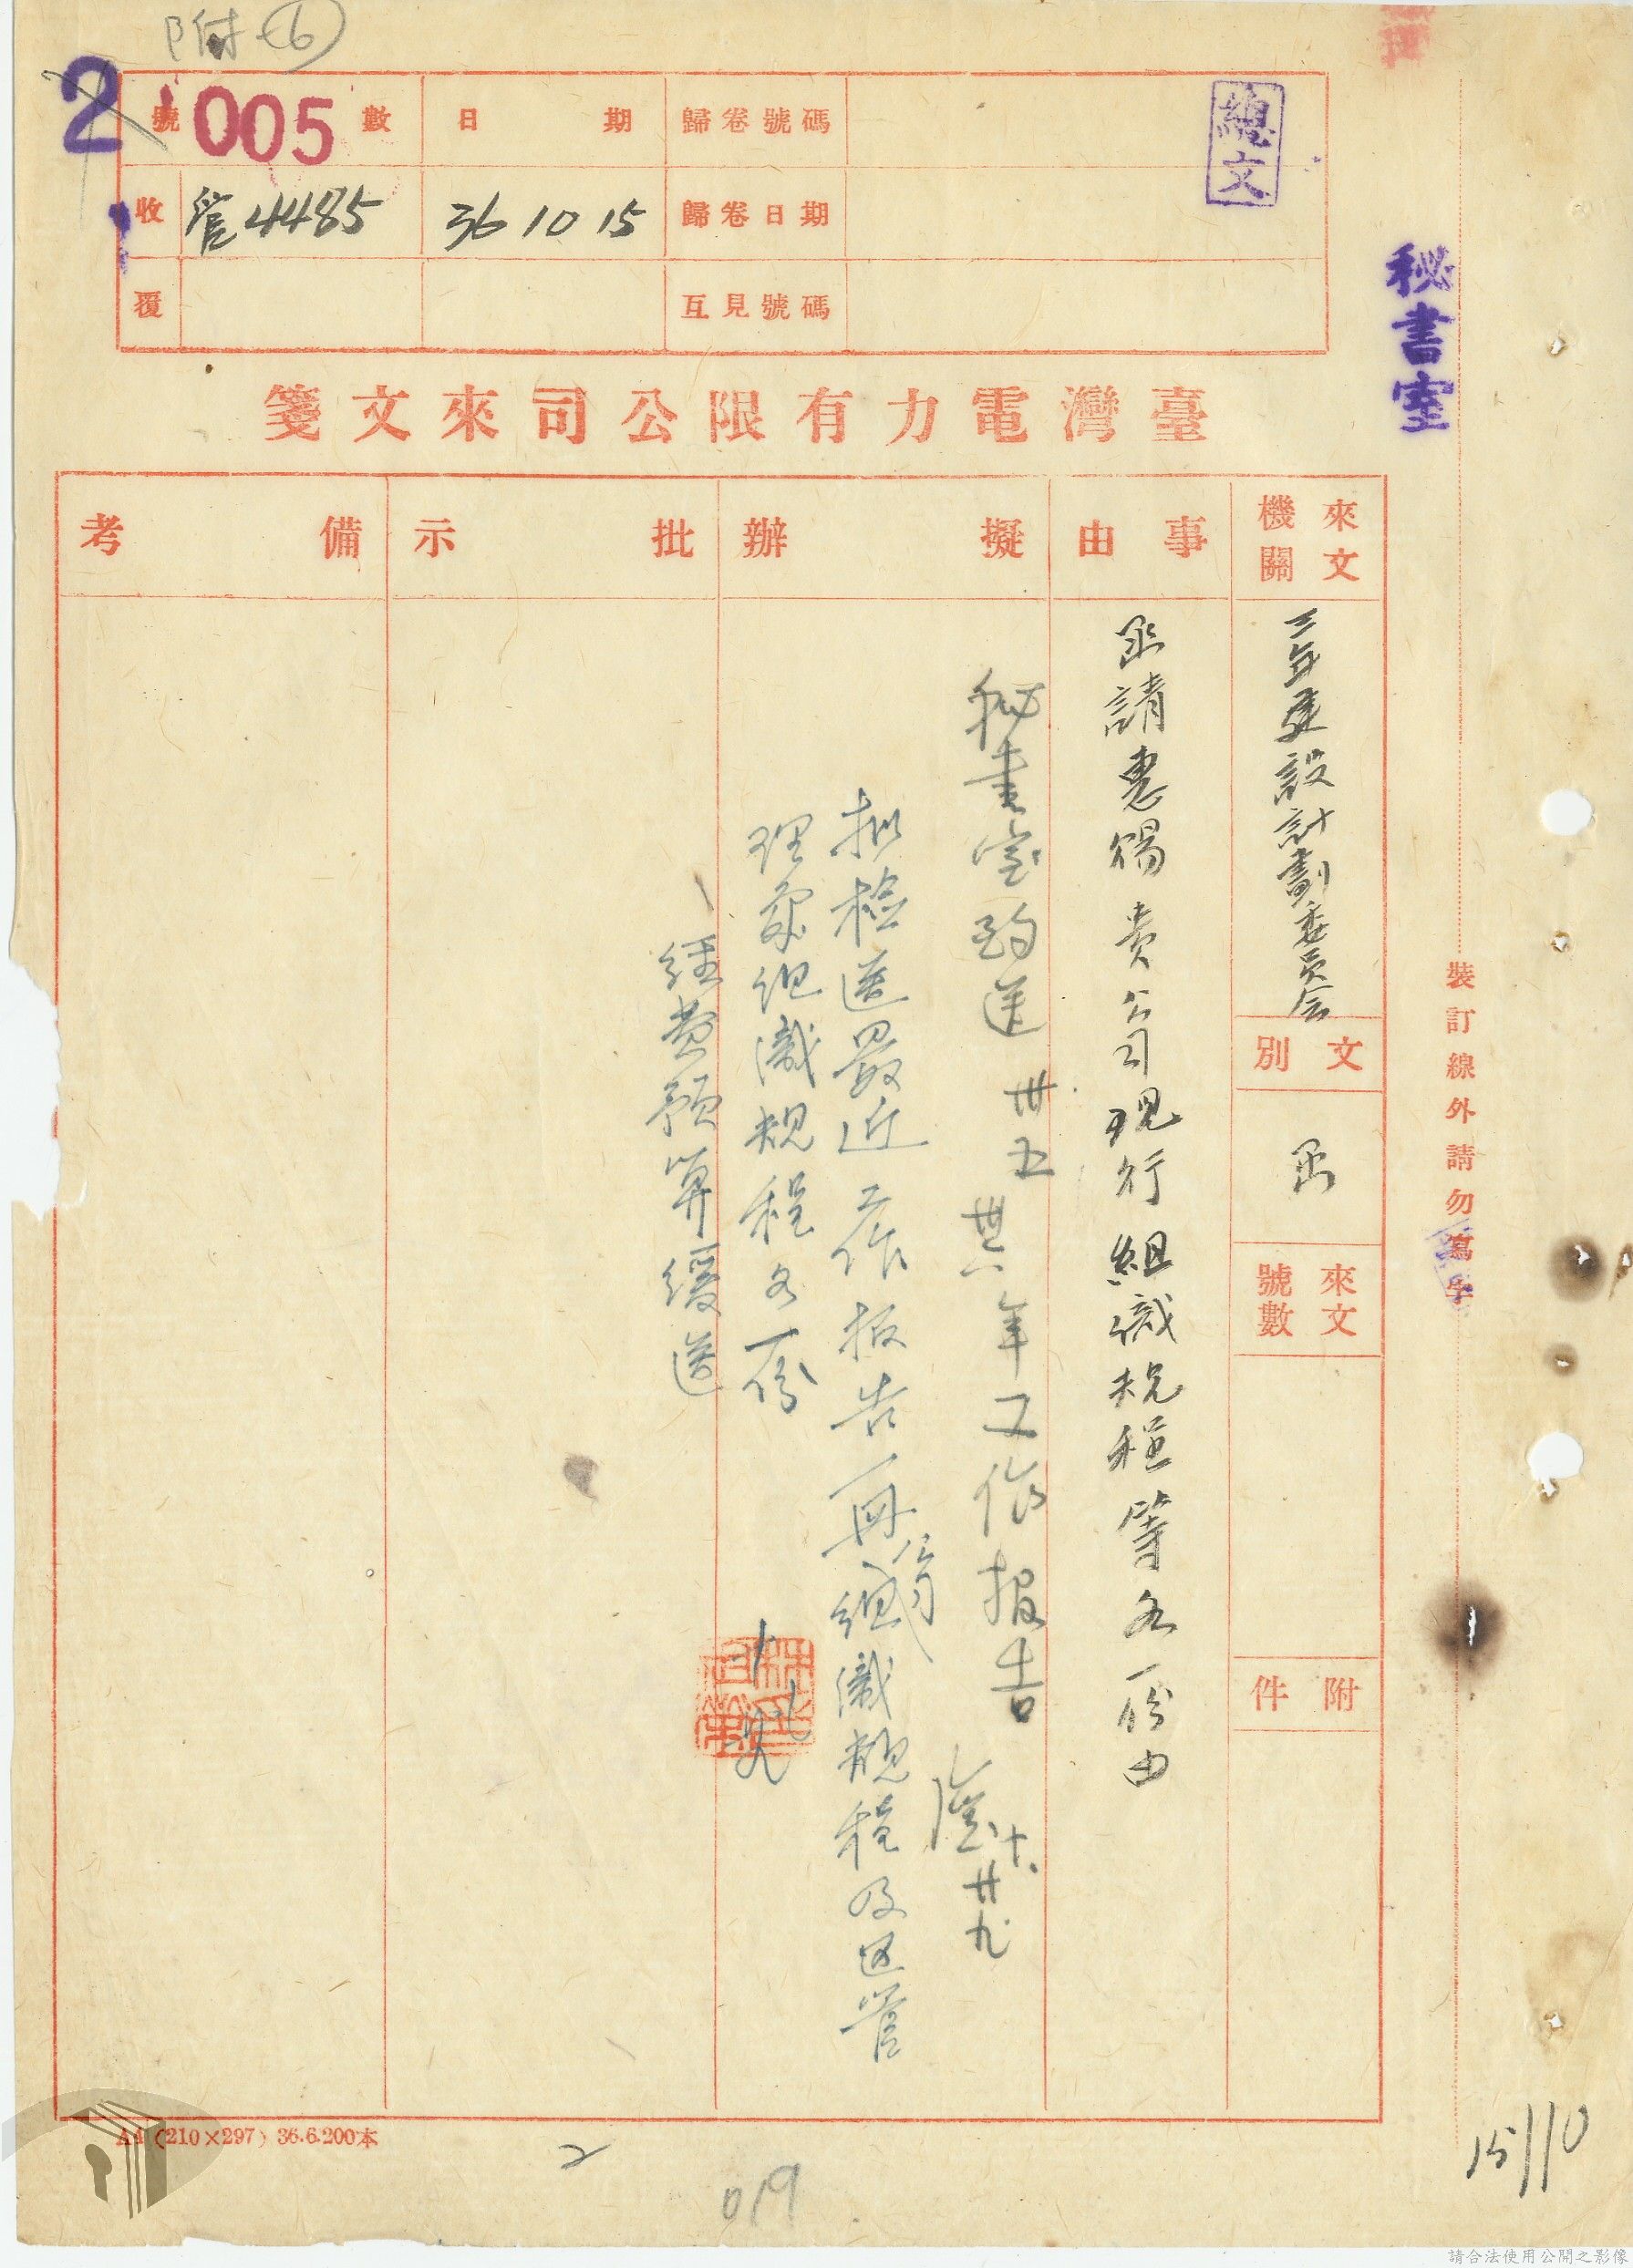 附(6)
2
號 1005 數
日期
歸卷號碼
總文
收
管4485
36 10 15
歸卷日期
覆
互見號碼
秘書室
臺灣電力有限公司來文箋
來文機關
三年建設計劃委員会
文別
函
來文號數
附件
事由
函請惠賜貴公司現行組織規程等各一份由
擬辦
秘書室 送卅五卅六年工作報告
十、廿九
擬檢送最近工作報告一冊公司組織規程及區管
理處組織規程各一份
經費預算緩送
批示
備考
裝訂線外請勿寫字
A4 (210×297) 36.6.200本
2
019
15/10
請合法使用公開之影像